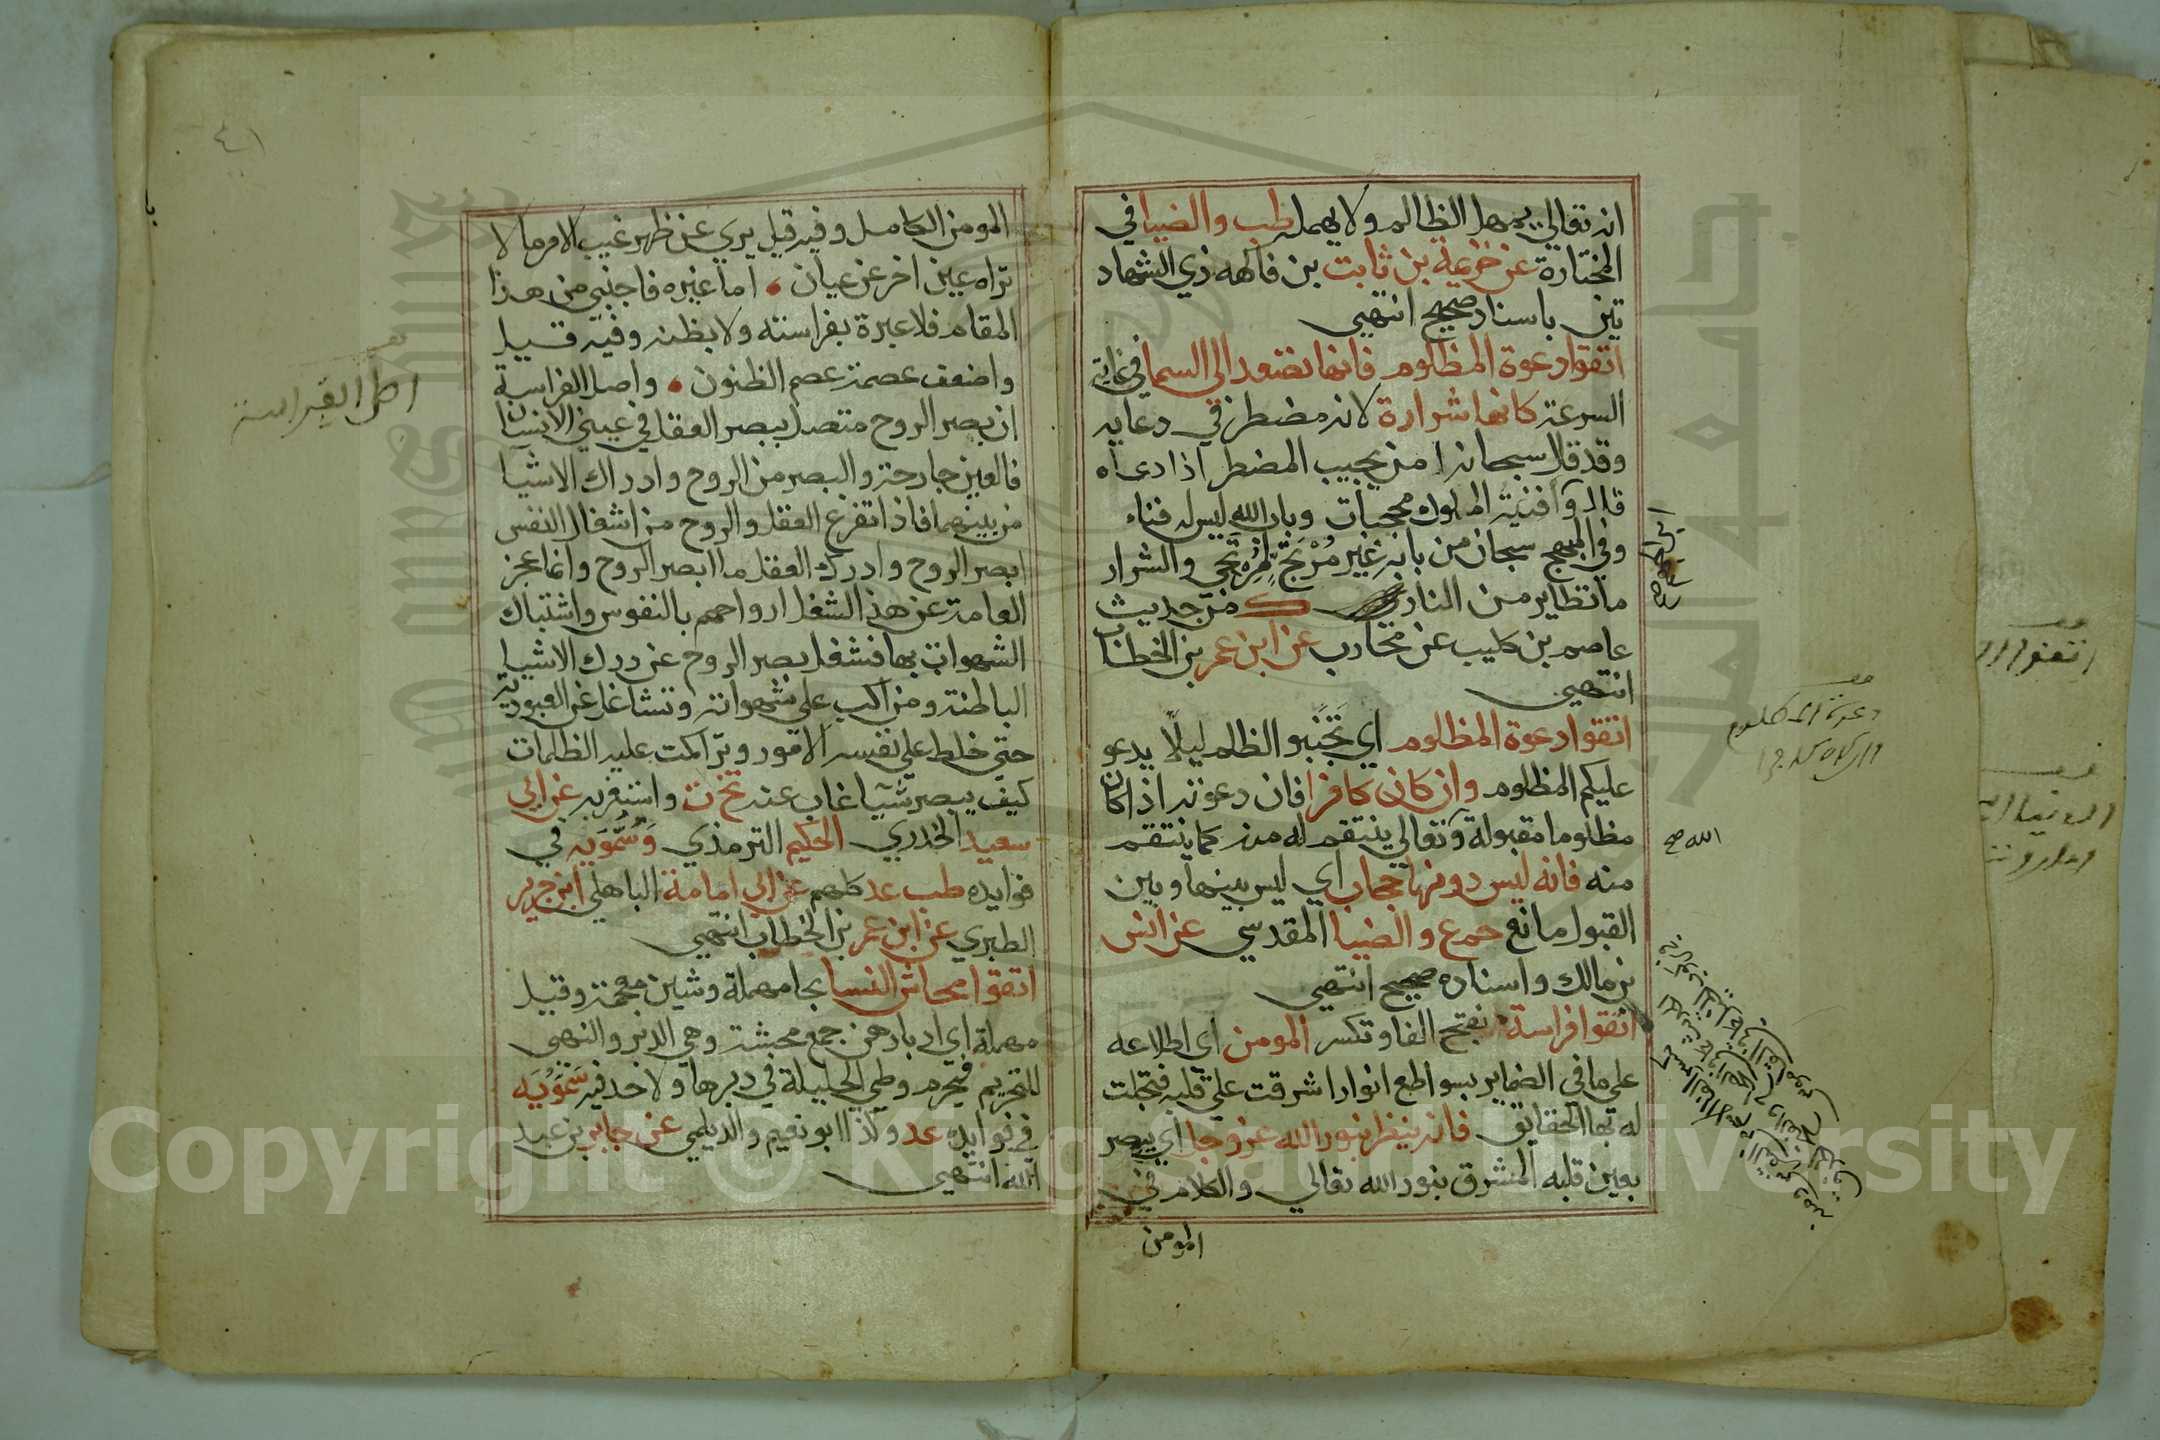 انه تعالي يمهل الظالم ولا يهمله طب والضيا في
المختارة عن خزيمة بن ثابت بن فاكهه ذي الشهاد
تين باسناد صحيح انتهي
اتقوا دعوة المظلوم فانها تصعد الي السما في غاية
السرعة كانها شرارة لانه مضطر في دعايه
وقد قال سبحانه امن يجيب المضطر اذا دعاه
قال وافنية الملوك محجبات وباب الله ليس له فناء
وفي المبهج سبحان من بابه غير مرتج والشرار
ما تطاير من النار ك من حديث
عاصم بن كليب عن محارب عن ابن عمر بن الخطاب
انتهي
اتقوا دعوة المظلوم اي تجنبو الظلم ليلا يدعو
عليكم المظلوم وان كان كافرا فان دعوته اذا كان
مظلوما مقبولة وتعالي ينتقم له منه كما ينتقم
الله صح
منه فانه ليس دونها حجاب اي ليس بينها وبين
القبول مانع حم ع والضيا المقدسي عن انس
بن مالك واسناده صحيح انتهي
اتقوا فراسة بفتح الفا وتكسر المومن اي اطلاعه
علي ما في الضماير بسواطع انوار اشرقت علي قلبه فتجلت
له بها الحقايق فانه ينظر بنور الله عز وجل اي يبصر
بعين قلبه المشرق بنور الله تعالي والكلام في
المومن
دعوة المظلوم
المومن الكامل وفيه قيل يري عن ظهر غيب الامر ما لا
تراه عين اخر عن عيان اما غيره فاجنبي من هذا
المقام فلا عبرة بفراسته ولا بظنه وفيه قيل
واضعف عصمة عصم الظنون واصل الفراسة
ان بصر الروح متصل ببصر العقل في عيني الانسان
فالعين جارحة والبصر من الروح وادراك الاشيا
من بينهما فاذا تفرغ العقل والروح من اشغال النفس
ابصر الروح وادرك العقل ما ابصر الروح وانما عجز
العامة عن هذا الشغل ارواحهم بالنفوس واشتباك
الشهوات بها فشغل بصر الروح عن درك الاشيا
الباطنة ومن اكب علي شهواته وتشاغل عن العبودية
حتي خلط علي نفسه الامور وتراكمت عليه الظلمات
كيف يبصر شيا غاب عنه تخ ت واستغربه عن ابي
سعيد الخدري الحكيم الترمذي وسمويه في
فوايده طب عد كلهم عن ابي امامة الباهلي ابن جرير
الطبري عن ابن عمر بن الخطاب انتهي
اتقوا محاش النسا بحا مهملة وشين معجمة وقيل
مهملة اي ادبارهن جمع محشة وهي الدبر والنهي
للتحريم فيحرم وطي الحليلة في دبرها ولا حد فيه سمويه
في فوايده عد وكذا ابو نعيم والديلمي عن جابر بن عبد
الله انتهي
اصل الفراسة
Copyright © King Saud University